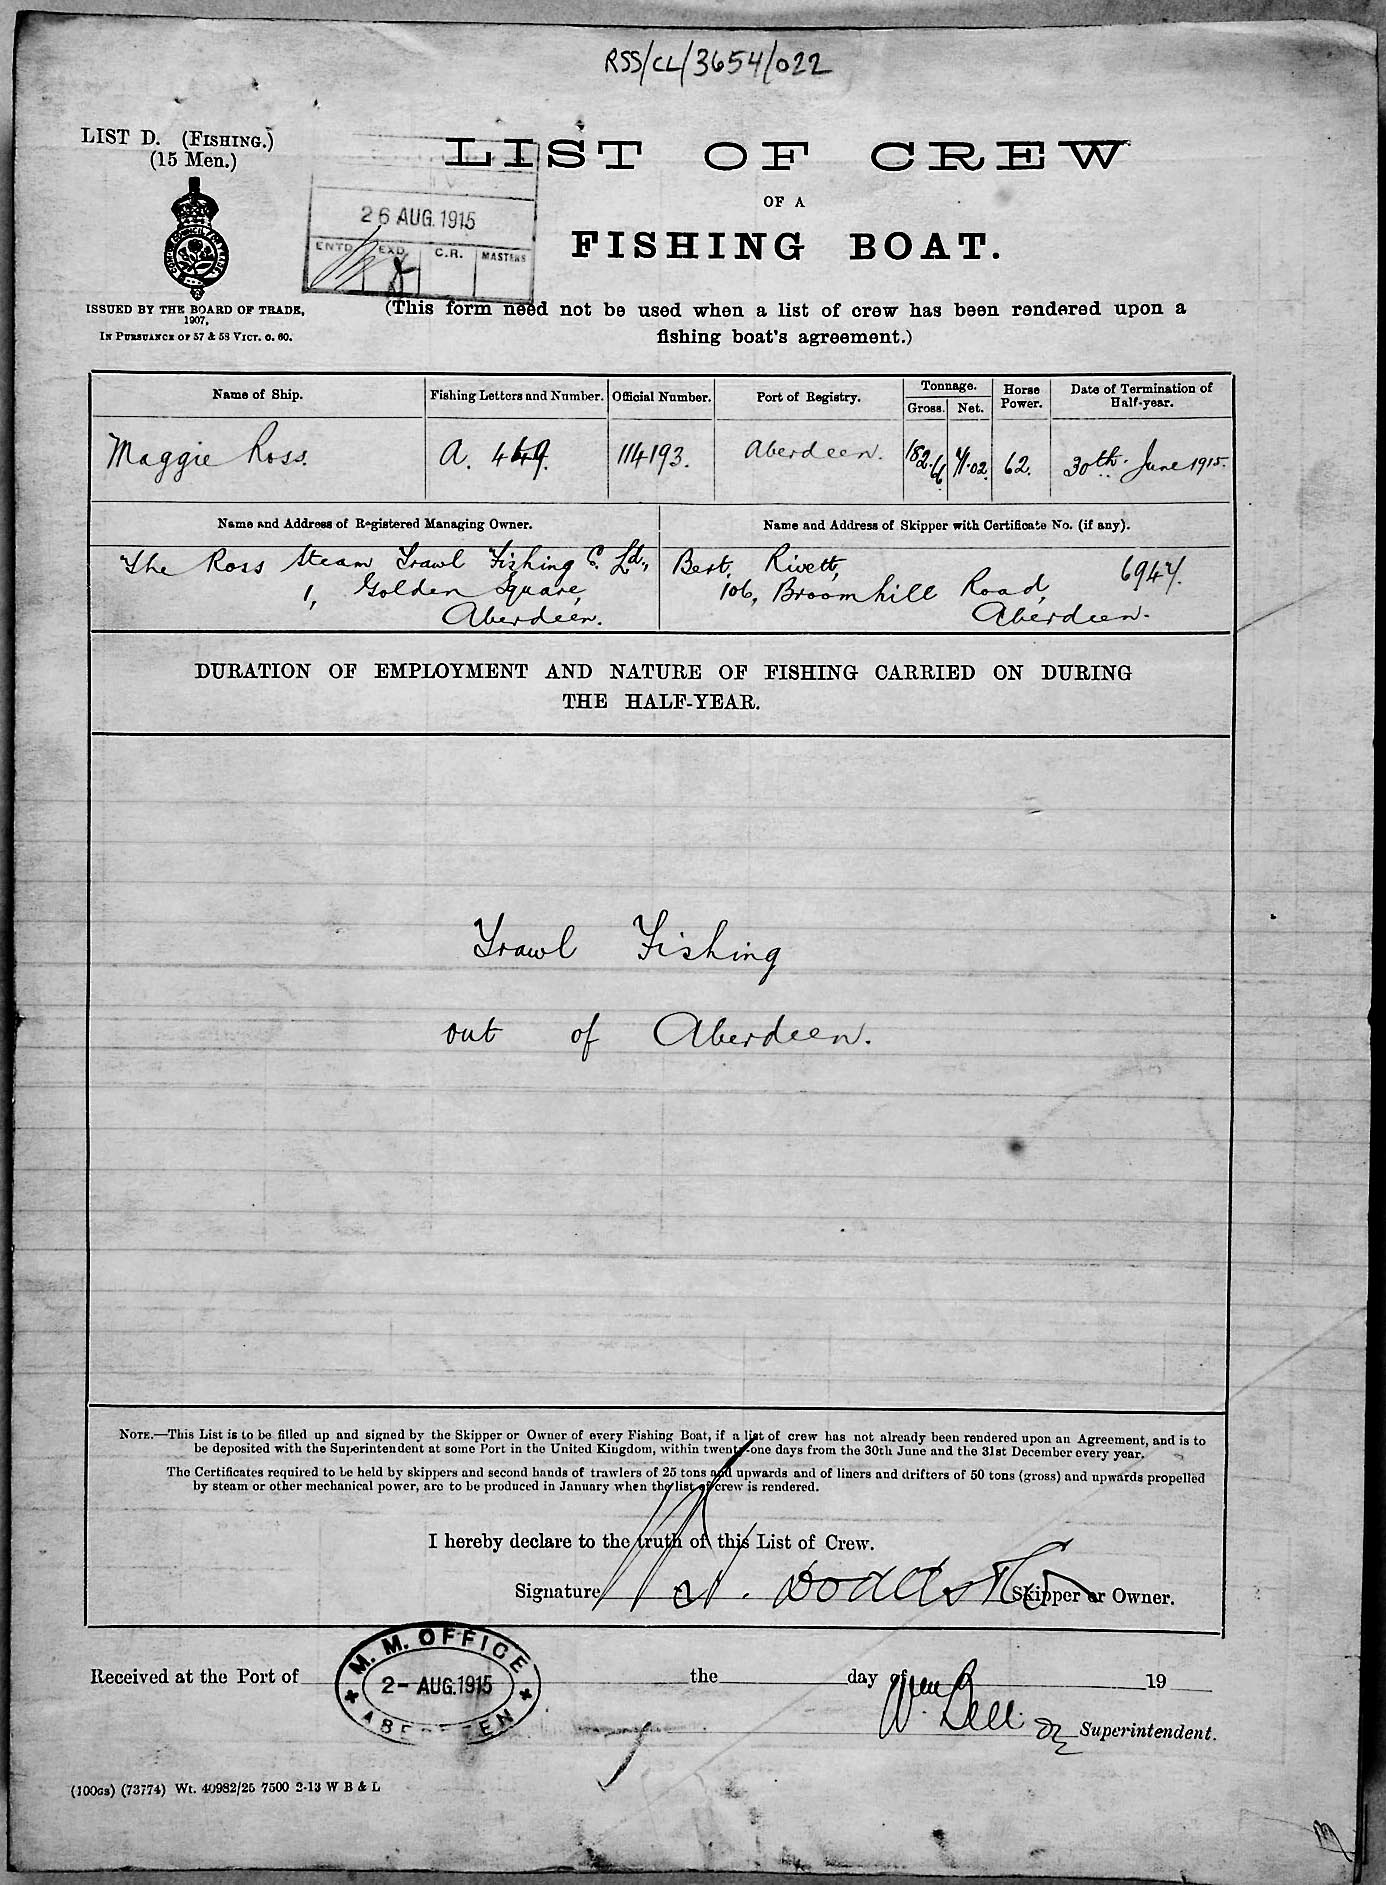 RSS/CL/3654/022
LIST D. (FISHING.)
(15 Men.)
LIST OF CREW
OF A
FISHING BOAT.
26 AUG. 1915
ENTD. EXD. C.R. MASTERS
ISSUED BY THE BOARD OF TRADE,
1907,
IN PURSUANCE OF 57 & 58 VICT. C. 60.
(This form need not be used when a list of crew has been rendered upon a
fishing boat's agreement.)
Name of Ship. Fishing Letters and Number. Official Number. Port of Registry. Tonnage. Horse Power. Date of Termination of Half-year.
Gross. Net.
Maggie Ross. A. 449. 114193. Aberdeen. 182.61 71.02. 62. 30th June 1915.
Name and Address of Registered Managing Owner. Name and Address of Skipper with Certificate No. (if any).
The Ross Steam Trawl Fishing Co. Ld., Bert. Rivett, 6947.
1, Golden Square, 106, Broomhill Road,
Aberdeen. Aberdeen.
DURATION OF EMPLOYMENT AND NATURE OF FISHING CARRIED ON DURING
THE HALF-YEAR.
Trawl Fishing
out of Aberdeen.
NOTE.—This List is to be filled up and signed by the Skipper or Owner of every Fishing Boat, if a list of crew has not already been rendered upon an Agreement, and is to
be deposited with the Superintendent at some Port in the United Kingdom, within twenty-one days from the 30th June and the 31st December every year.
The Certificates required to be held by skippers and second hands of trawlers of 25 tons and upwards and of liners and drifters of 50 tons (gross) and upwards propelled
by steam or other mechanical power, are to be produced in January when the list of crew is rendered.
I hereby declare to the truth of this List of Crew.
Signature Skipper or Owner.
M. M. OFFICE
2- AUG. 1915
ABERDEEN
Received at the Port of the day of 19
W. Bell Superintendent.
(100GS) (73774) Wt. 40982/25 7500 2-13 W B & L